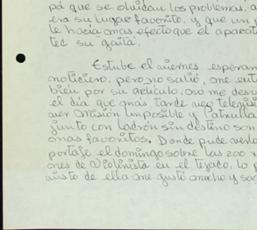 pá que se olvidan los problemas, a
era su lugar favorito, y que un
le hacia mas efecto que el aparato
tec su gaita.
Estube el viernes esperan
noticiero, pero no salió, me ent
bien por su articulo, no me des
el dia que mas tarde veo televis
ver Mision Imposible y Patrulla
junto con Ladrón sin destino son
mas favoritos. Donde pude verlo
portaje el domingo sobre las 200 m
ones de Violinista en el tejado, lo p
visto de ella me gustó mucho y sac